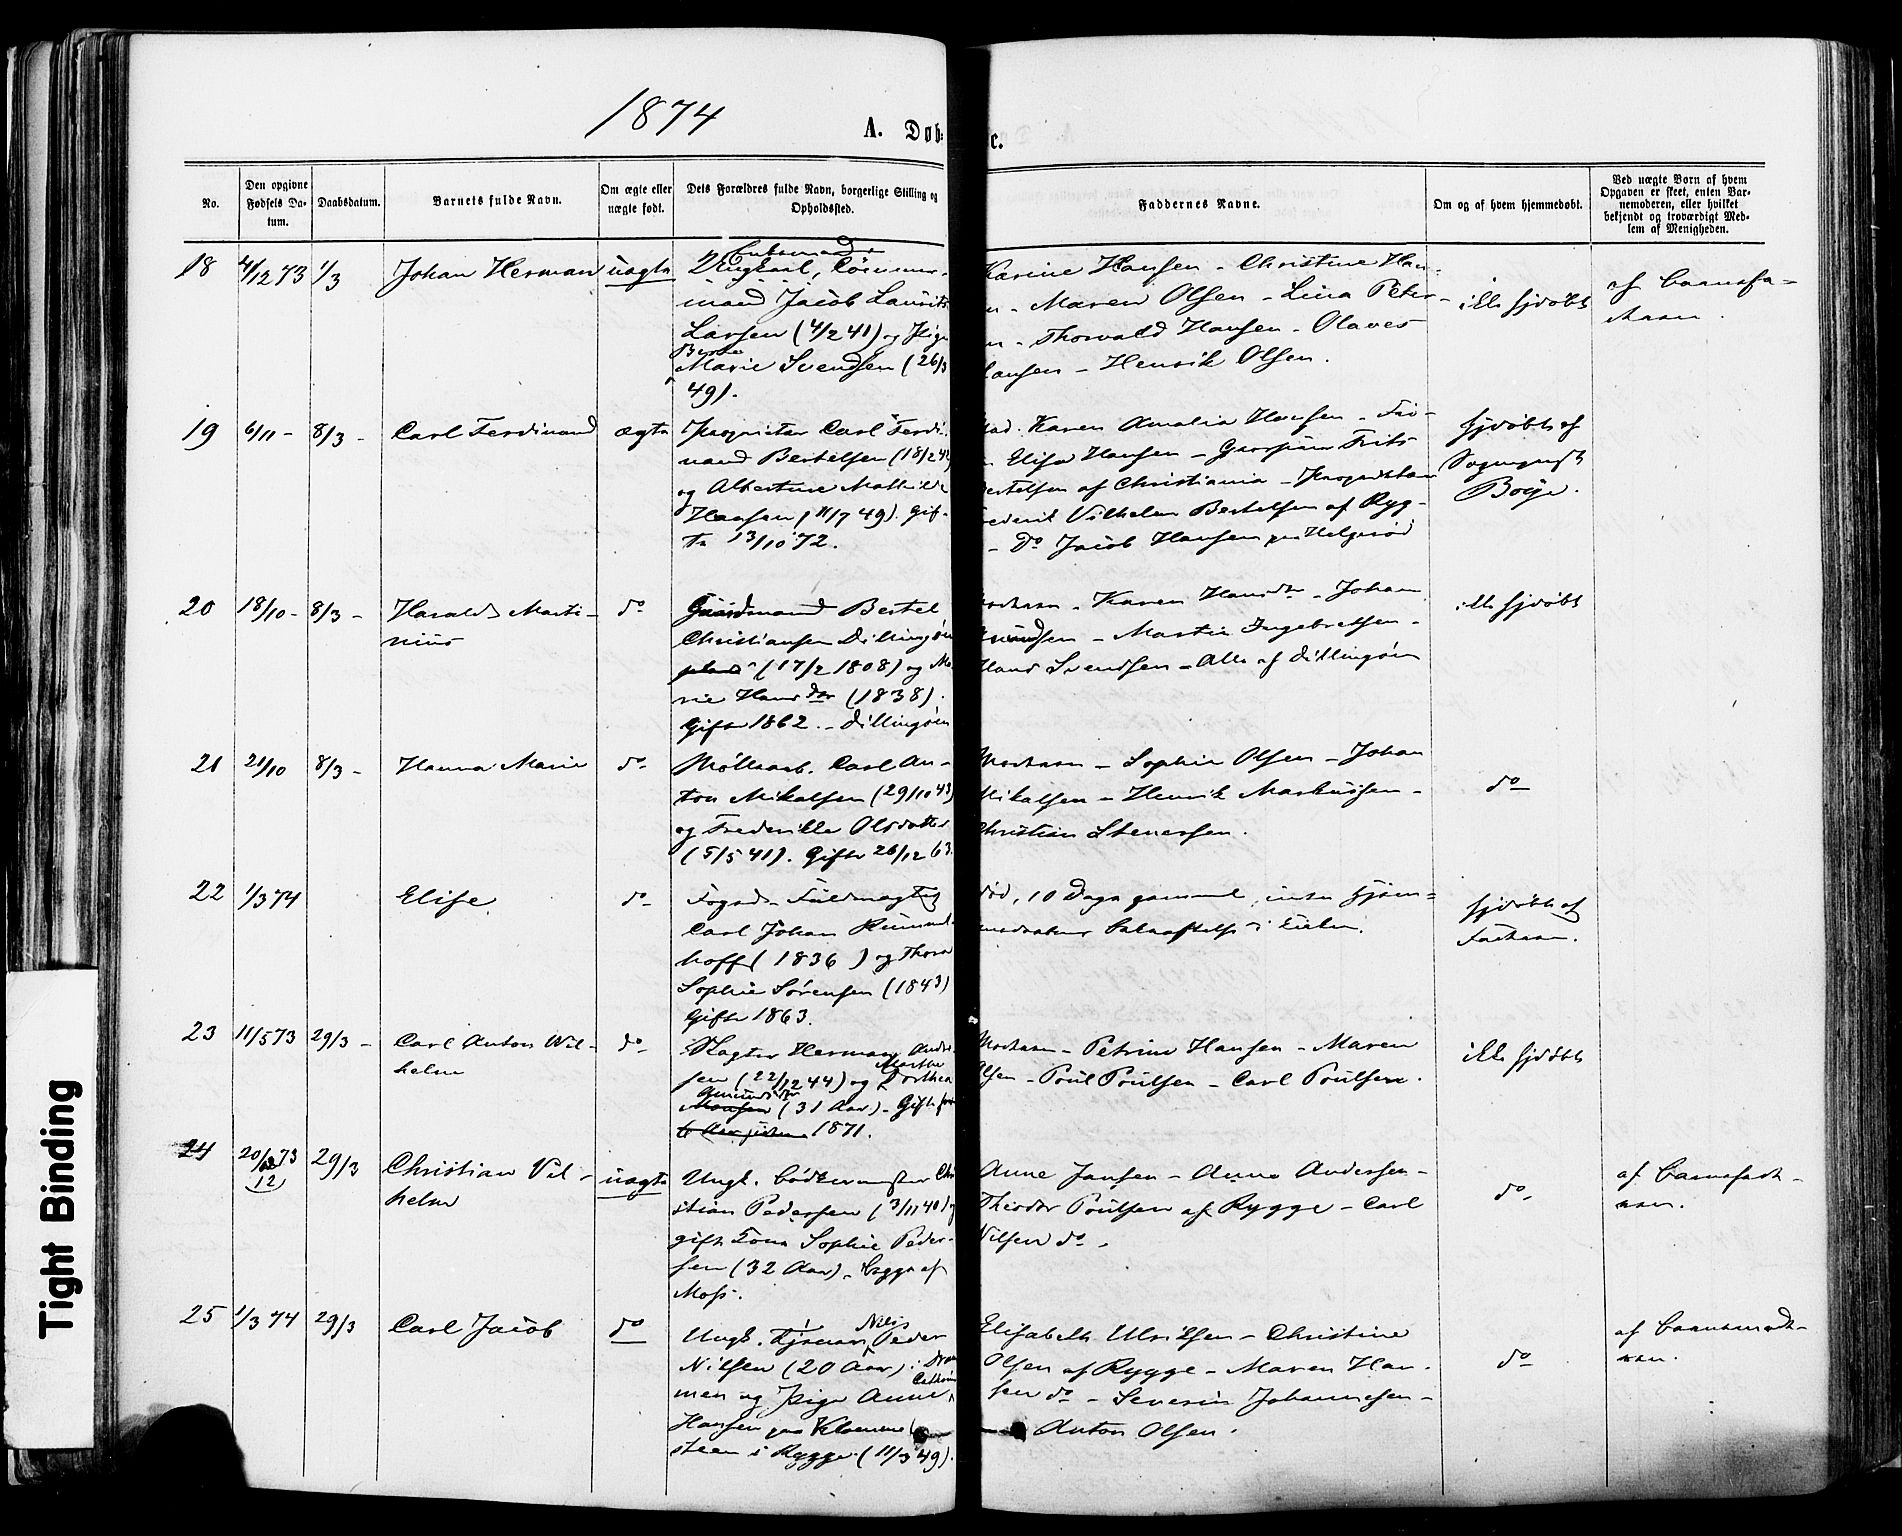 1874
A. Døb: c.
No.
Den opgivne Fødsels Datum.
Daabsdatum.
Barnets fulde Navn.
Om ægte eller uægte født.
Dets Forældres fulde Navn, borgerlige Stilling og Opholdssted.
Faddernes Navne.
Om og af hvem hjemmedøbt.
Ved uægte Born af hvem Opgaven er skeet, enten Barnemoderen, eller hvilket bekjendt og troværdigt Medlem af Menigheden.
18 4/12 73 1/3 Johan Herman uægte
Ungkarl,
mand Jacob Laurits
Larsen (4/2 41) og Pige
Marie Svendsen (26/3
49).
Karine Hansen - Christine Han-
n - Maren Olsen - Lina Peter-
n - Thorvald Hansen - Olaves
Hansen - Henrik Olsen.
ikke hjdøbt
af Barnefa-
19 6/11 - 8/3 - Carl Ferdinand ægte
Proprietær Carl Ferdi-
nand Bertelsen (18/2 4
og Albertine Mathilde
Hansen (11/7 49). Gif-
te 13/10 72.
Mad. Karen Amalia Hansen - Frö-
n Elisa Hansen - Grosserer Frits
Bertelsen af Christiania - Proprietær
rederik Vilhelm Bertelsen af Ryg-
- do Jacob Hansen paa Helgerød
hjdøbt af
Boije.
20 18/10 - 8/3 - Harald Marti-
nius
do
Gaardmand Bertel
Christiansen Dillingøen
(17/2 1808) og Ma-
rie Hansdtr (1838).
Gifte 1862. - Dillingøen
- Karen Hansdtr - Johan
- Martin Ingebretsen -
Hans Svendsen - Alle af Dillingøen
ikke hjdøbt
21 21/10 8/3 - Hanna Marie do
Møllearb. Carl An-
ton Mikalsen (29/10 43)
og Frederikke Olsdatter
(5/5 41). Gifte 26/12 63.
Moderen - Sophie Olsen - Johan
Mikalsen - Henrik Markussen -
Christian Stenersen.
do
22 1/3 74 Elise. do
Foged-Fuldmægtig
Carl Johan
hoff (1836 ) og Thora
Sophie Sørensen (1843)
Gifte 1863.
død, 10 Dage gammel, inden Hjem-
i Kirken.
hjdøbt af
Faderen.
23 11/5 73 29/3 - Carl Anton Wil-
helm
do
Slagter Herman Ander-
sen (22/12 44) og Marthe Dorthea
Gmundsdtr
(31 Aar) - Gifte
1871.
Moderen - Petrine Hansen - Maren
Olsen - Poul Poulsen - Carl Poulsen.
ikke hjdøbt
24 20/12 73 29/3 Christian Vil-
12
helm
uægte
Ungk. Bødkermester Chri
stian Pedersen (3/11 40) og
gift Kone Sophie Peder-
sen (32 Aar) - begge af
Moss.
Anne Jansen - Anne Andersen -
Theodor Poulsen af Rygge - Carl
Nilsen do.
do
af Barnefade-
ren.
25 1/3 74 29/3 Carl Jacob do
Ungk. Tjener Nils Peder
Nilsen (20 Aar) i Dram
men og Pige Anne Cathrine
Hansen paa
steen i Rygge (11/3 49).
Elisabeth Ulriksen - Christine
Olsen af Rygge - Maren Han-
sen do - Severin Johannesen -
Anton Olsen.
do
af Barnemode-
ren.
Tight Binding